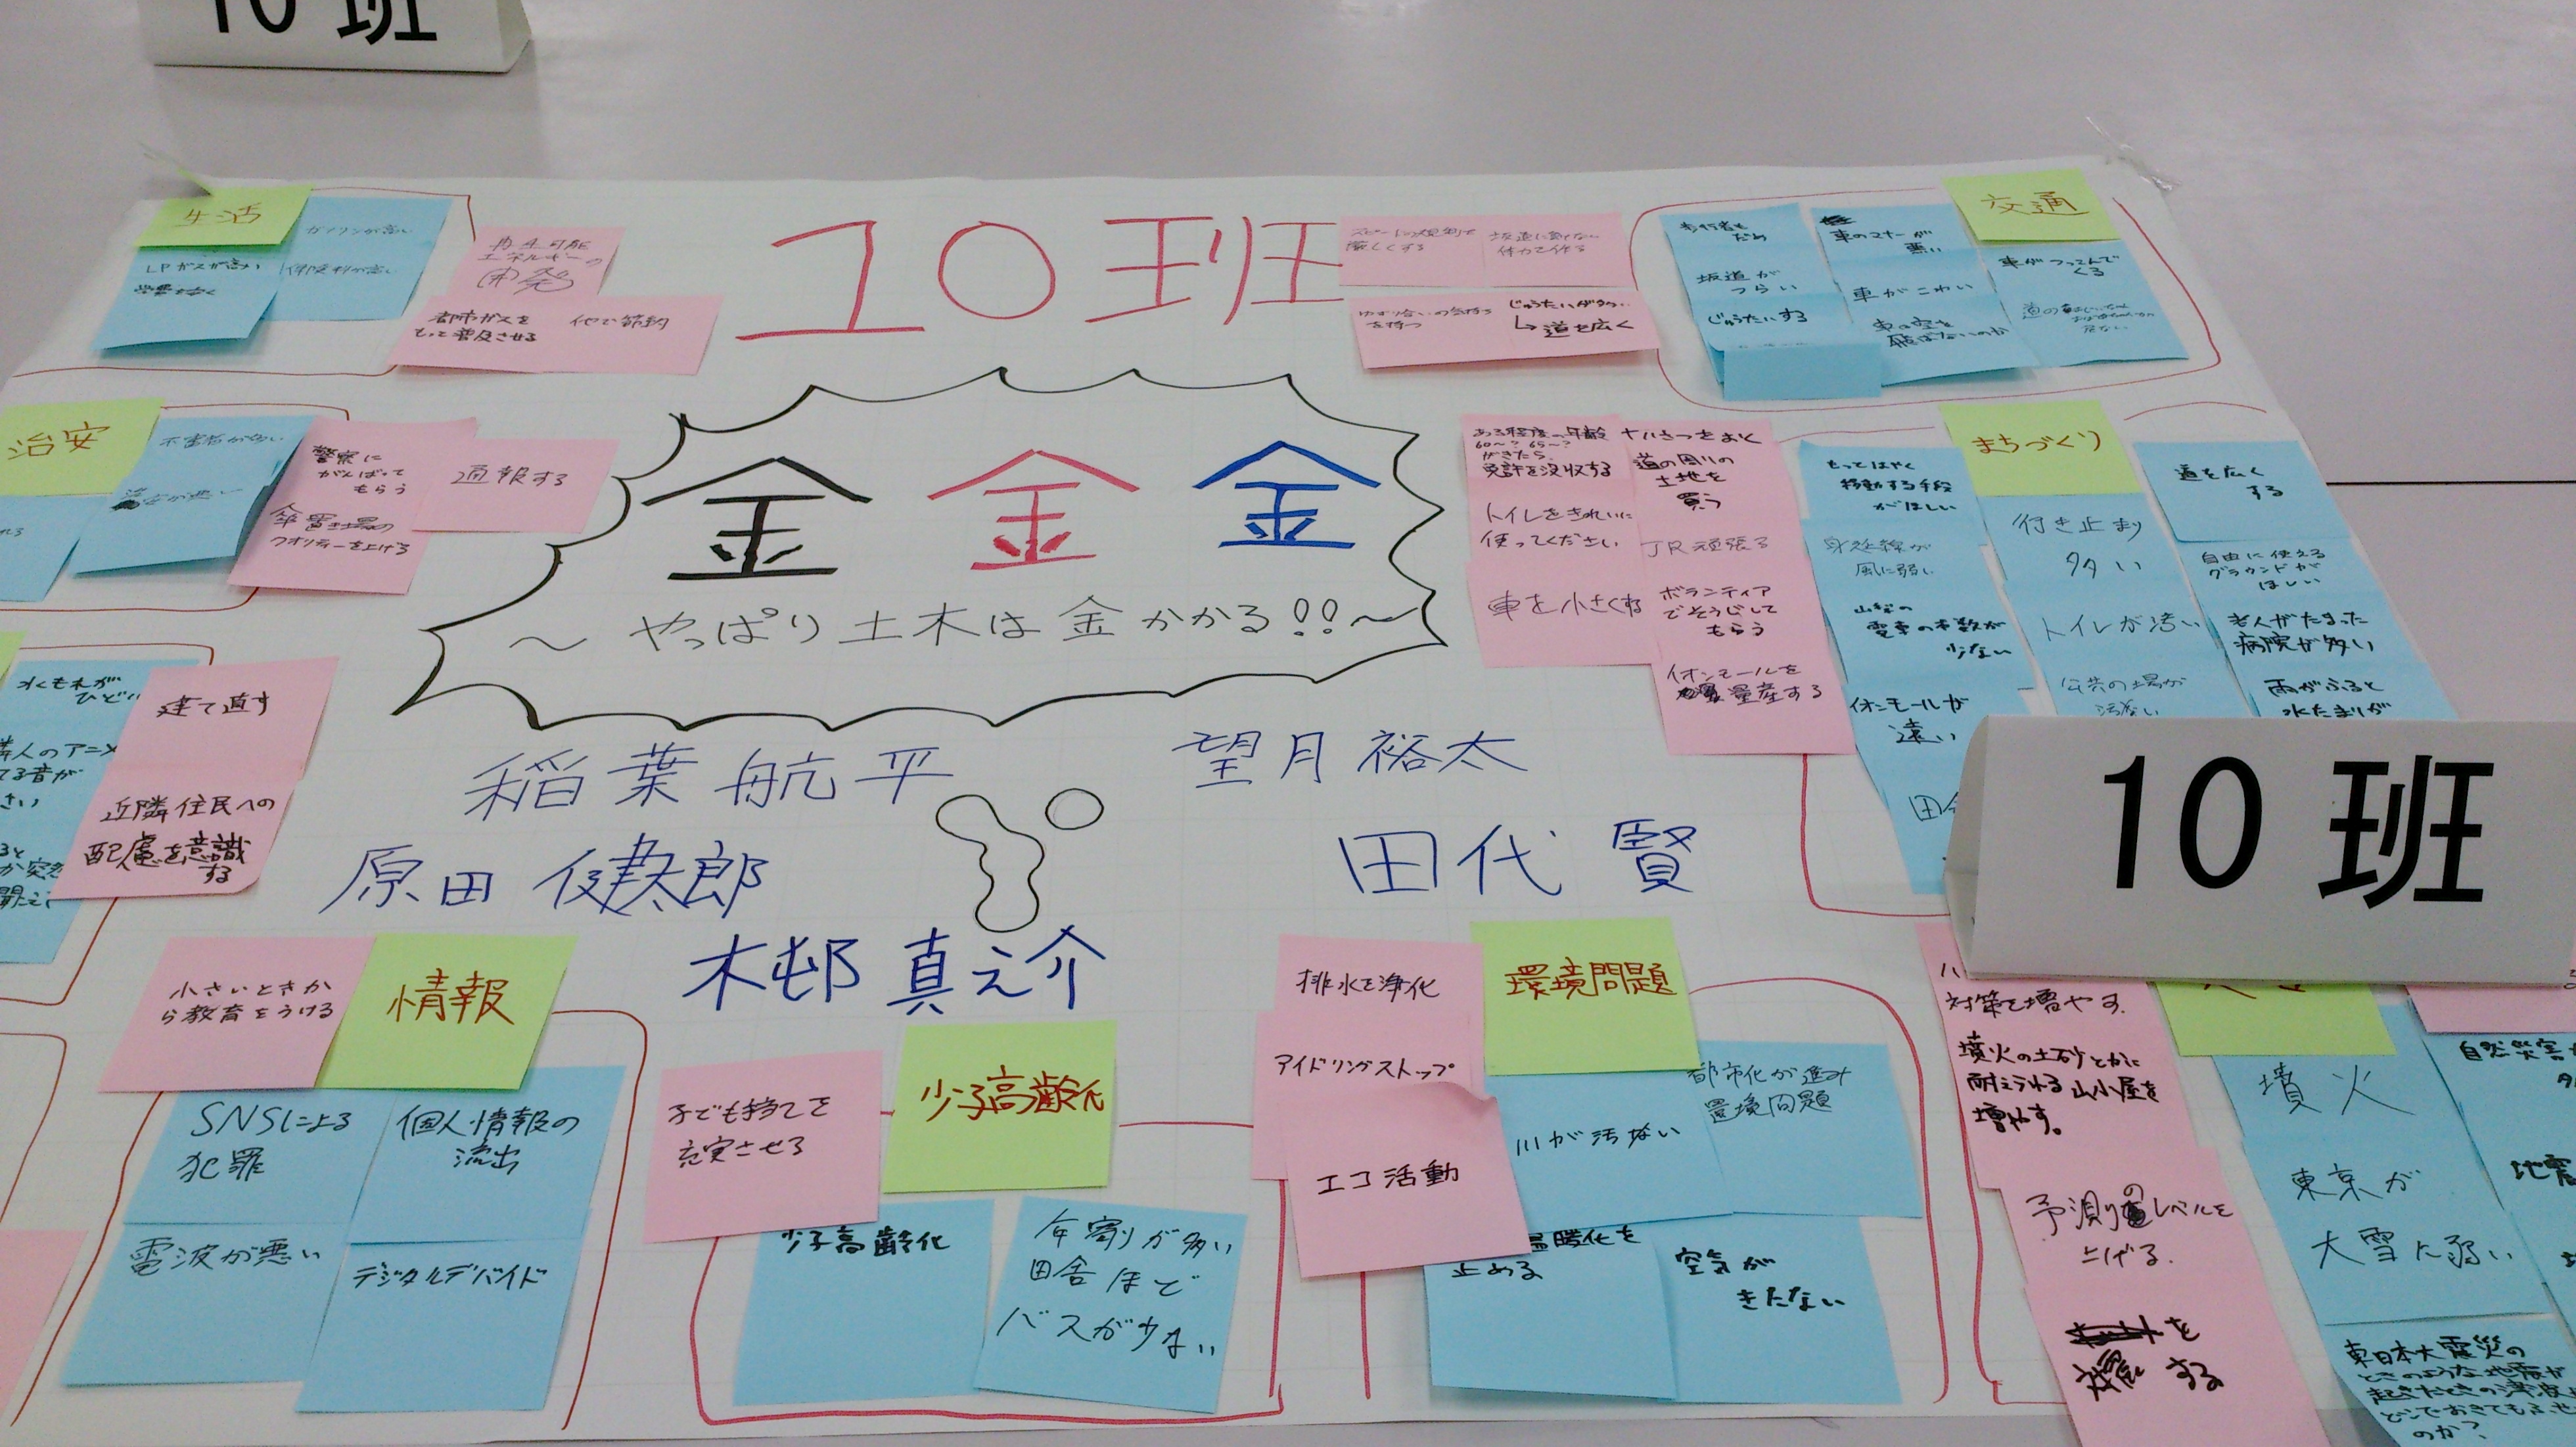 10 班
10班
生活
ガソリンが高い
LPガスが高い
保険料が高い
再生可能
エネルギーの
開発
都市ガスを
もって普及させる
他で節約
交通
歩行者も
だめ
坂道が
つらい
じゅうたいする
車のマナーが
悪い
車がこわい
車は空を
飛ばないのか
車がつっこんで
くる
スピードの規制を
厳しくする
ゆずり合いの気持ち
を持つ
じゅうたいがタタい
↳道を広く
治安
不審者が多い
警察に
がんばって
もらう
傘置き場の
クオリティーを上げる
通報する
金 金 金
～やっぱり土木は金かかる!!～
ある程度の年齢
60～? 65～?
がきたら
免許を没収する
トイレをきれいに
使ってください
車を小さくする
道の周りの
土地を
買う
JR頑張る
ボランティア
でそうじして
もらう
イオンモールを
量産する
まちづくり
もっとはやく
移動する手段
がほしい
身延線が
風に弱い
山梨の
電車の本数が
少ない
イオンモールが
遠い
行き止まり
多い
トイレが汚い
公共の場が
汚ない
道を広く
する
自由に使える
グラウンドが
ほしい
老人がたまった
病院が多い
雨がふると
水たまりが
10 班
水もれが
ひどい
建て直す
近隣住民への
配慮を意識
する
稲葉航平
望月裕太
原田健太郎
田代賢
木邨真之介
情報
小さいときか
ら教育をうける
SNSによる
犯罪
個人情報の
流出
電波が悪い
デジタルデバイド
少子高齢化
子ども持てを
充実させる
少子高齢化
年寄りが多い
田舎ほど
バスが少ない
環境問題
排水を浄化
アイドリングストップ
エコ活動
川が汚ない
都市化が進み
環境問題
温暖化を
止める
空気が
きたない
対策を増やす。
噴火の土砂とかに
耐えられる山小屋を
増やす。
予測のレベルを
上げる。
を
する
噴火
東京が
大雪に弱い
自然災害
地震
東日本大震災の
ときのような地震が